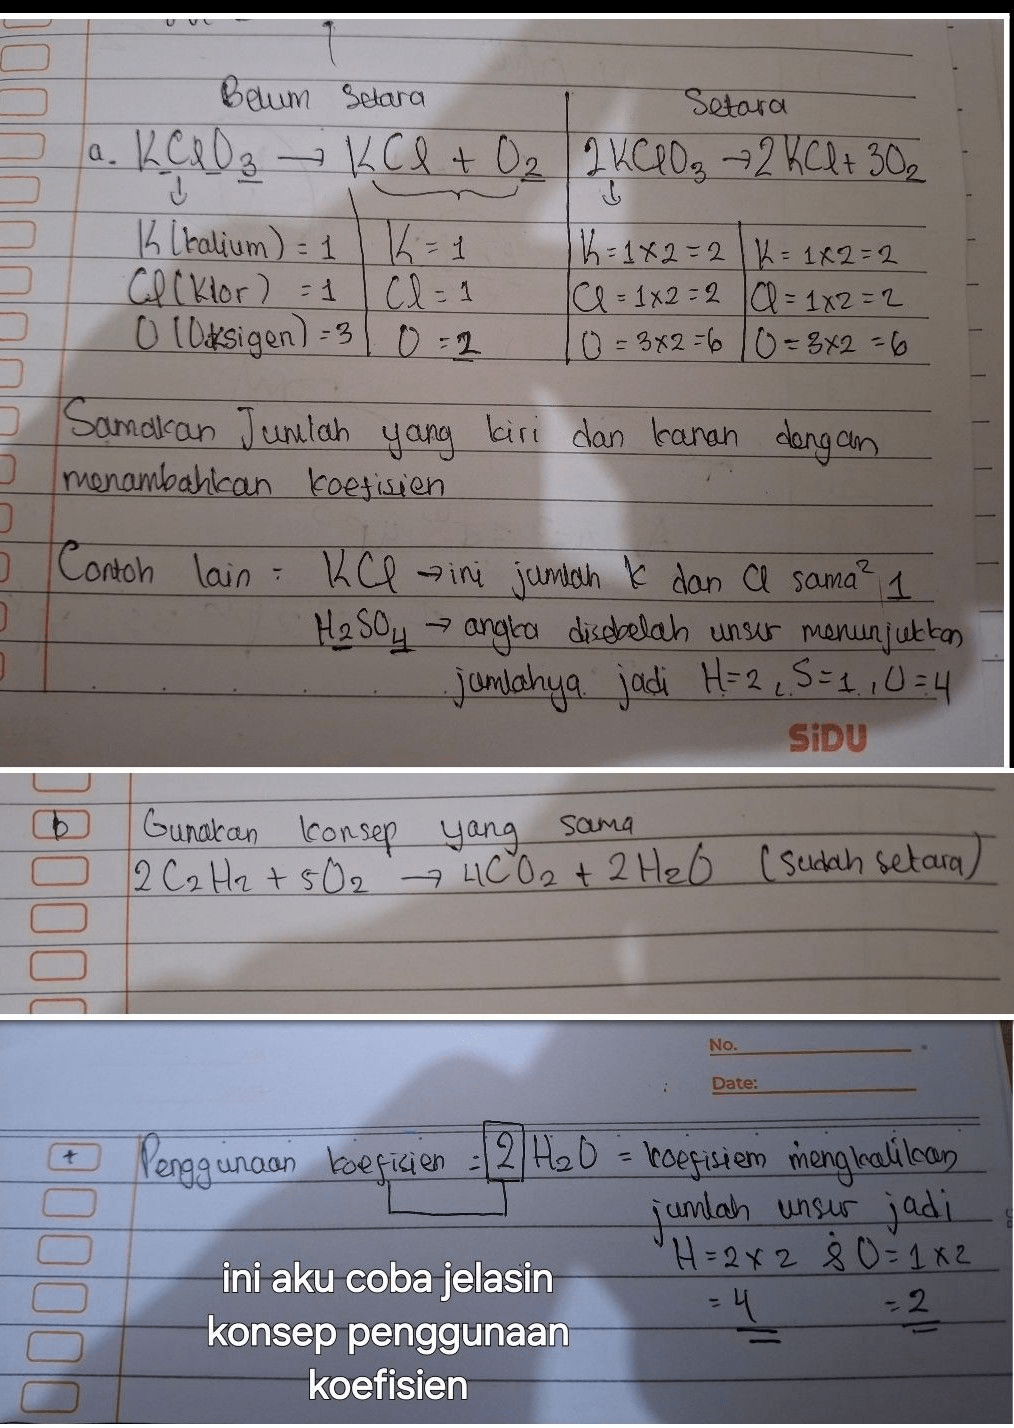 Belum Setara
Setara
a. KClO3 → KCl + O2
2KClO3 → 2KCl + 3O2
K (kalium) = 1
K = 1
K = 1x2 = 2
K = 1x2 = 2
Cl (Klor) = 1
Cl = 1
Cl = 1x2 = 2
Cl = 1x2 = 2
O (Oksigen) = 3
O = 2
O = 3x2 = 6
O = 3x2 = 6
Samakan Jumlah yang kiri dan kanan dengan
menambahkan koefisien
Contoh lain = KCl → ini jumlah K dan Cl sama² 1
H2SO4 → angka disebelah unsur menunjukkan
jumlahya jadi H=2, S=1, O=4
SiDU
b Gunakan konsep yang sama
2C2H2 + 5O2 → 4CO2 + 2H2O (sudah setara)
No.
Date:
+ Penggunaan koefisien = 2 H2O = koefisiem mengkalikan
jumlah unsur jadi
H = 2 x 2 & O = 1 x 2
= 4 = 2
ini aku coba jelasin
konsep penggunaan
koefisien